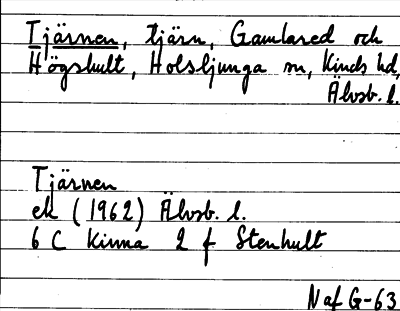 Tjärnen, tjärn, Gamlared och
Högshult, Holsljunga sn, Kinds hd,
Älvsb. l.
Tjärnen
ek (1962) Älvsb. l.
6 C Kinna 2 f Stenhult
Naf G-63